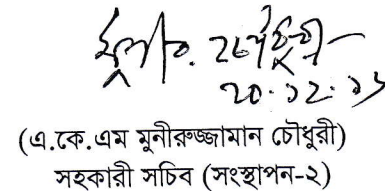 ২০.১২.১১
(এ.কে.এম মুনীরুজ্জামান চৌধুরী)
সহকারী সচিব (সংস্থাপন-২)